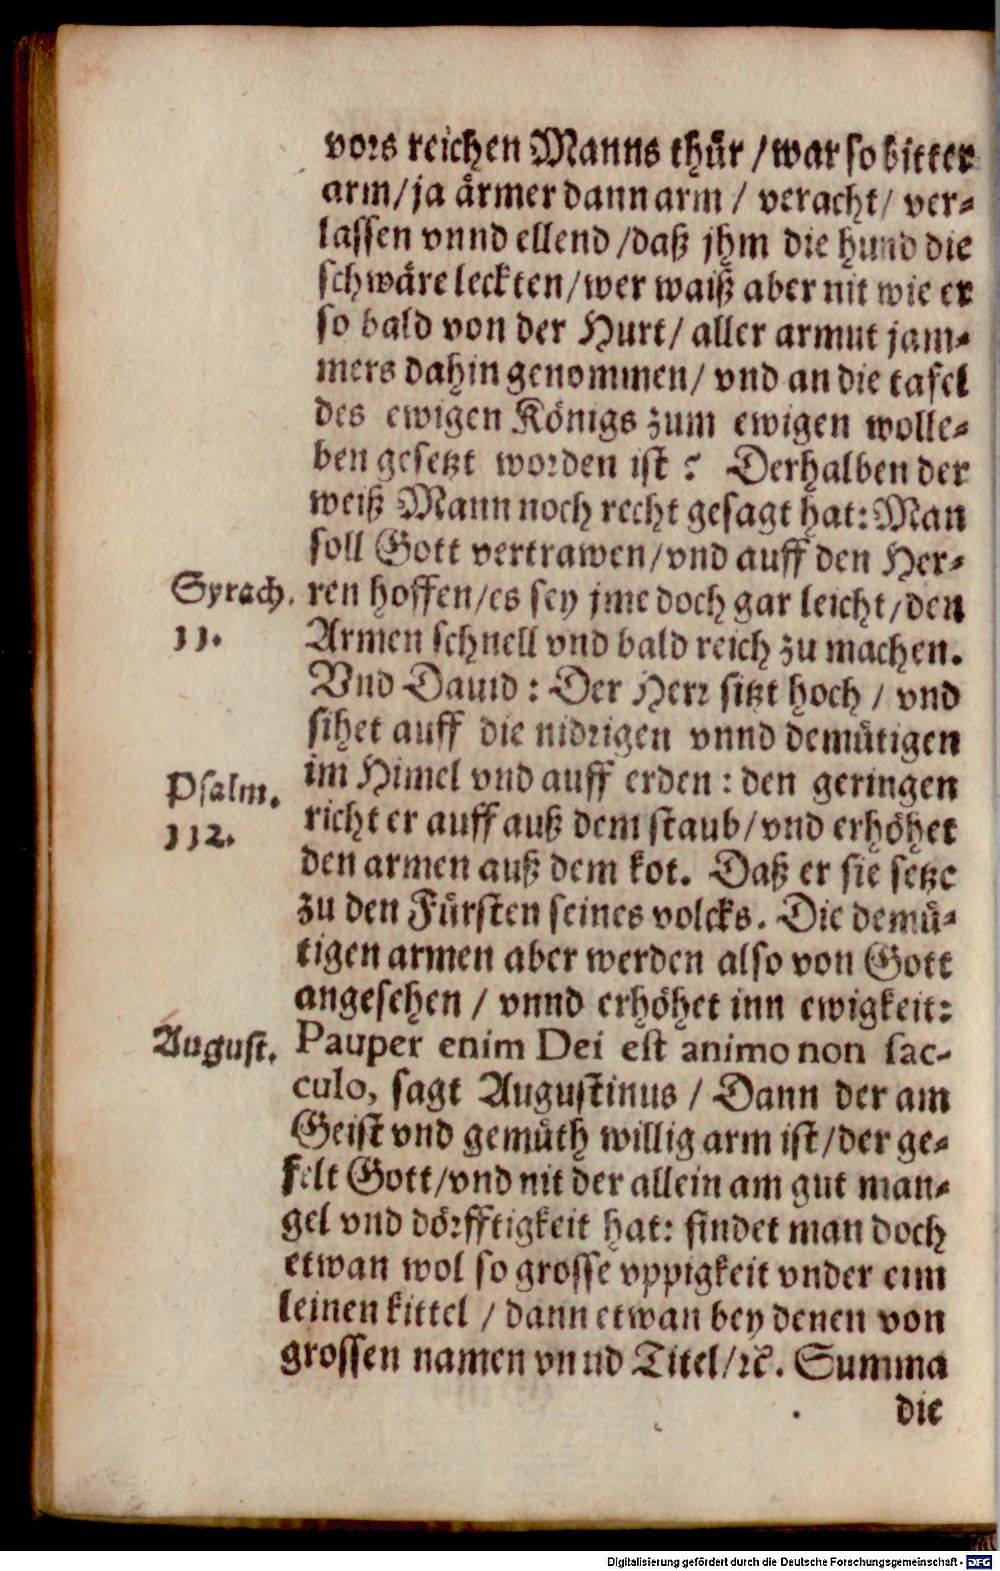 vors reichen Manns thür / war so bitter
arm / ja ärmer dann arm / veracht / ver-
lassen vnnd ellend / daß jhm die hund die
schwäre leckten / wer waiß aber nit wie er
so bald von der Hurt / aller armut jam-
mers dahin genommen / vnd an die tafel
des ewigen Königs zum ewigen wolle-
ben gesetzt worden ist ? Derhalben der
weiß Mann noch recht gesagt hat: Man
soll Gott vertrawen / vnd auff den Her-
Syrach. ren hoffen / es sey jme doch gar leicht / den
11. Armen schnell vnd bald reich zu machen.
Vnd Dauid : Der Herr sitzt hoch / vnd
sihet auff die nidrigen vnnd demütigen
Psalm. im Himel vnd auff erden : den geringen
112. richt er auff auß dem staub / vnd erhöhet
den armen auß dem kot. Daß er sie setze
zu den Fürsten seines volcks. Die demü-
tigen armen aber werden also von Gott
angesehen / vnnd erhöhet inn ewigkeit:
August. Pauper enim Dei est animo non sac-
culo, sagt Augustinus / Dann der am
Geist vnd gemüth willig arm ist / der ge-
felt Gott / vnd nit der allein am gut man-
gel vnd dörfftigkeit hat: findet man doch
etwan wol so grosse vppigkeit vnder eim
leinen kittel / dann etwan bey denen von
grossen namen vnnd Titel / ꝛc. Summa
die
Digitalisierung gefördert durch die Deutsche Forschungsgemeinschaft - DFG